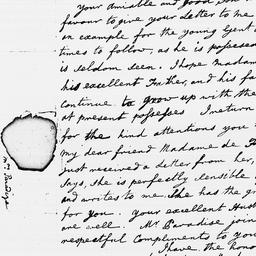 your amiable and good Son
favour to give your Letter to me
an example for the young Gent
times to follow, as he is possessed
is seldom seen. I hope Madame
his excellent Father, and his fa
continue to grow up with the
at present possesses I return
for the kind attentions you
my dear friend Madame de
just received a Letter from her,
says, she is perfectly sensible
and writes to me, she has the gr
for you. your excellent Hus
are well. Mr Paradise join
respectful Compliments to you
have the hono
Mrs Paradise